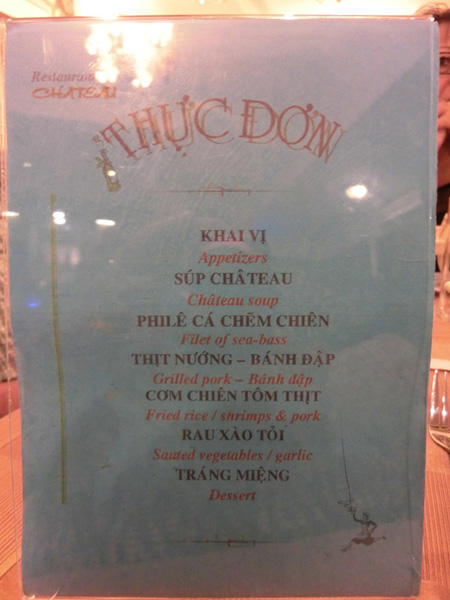 Restaurant
CHATEAU
THỰC ĐƠN
KHAI VỊ
Appetizers
SÚP CHÂTEAU
Château soup
PHILÊ CÁ CHẼM CHIÊN
Filet of sea-bass
THỊT NƯỚNG – BÁNH ĐẬP
Grilled pork – Bánh dập
CƠM CHIÊN TÔM THỊT
Fried rice / shrimps & pork
RAU XÀO TỎI
Sauted vegetables / garlic
TRÁNG MIỆNG
Dessert